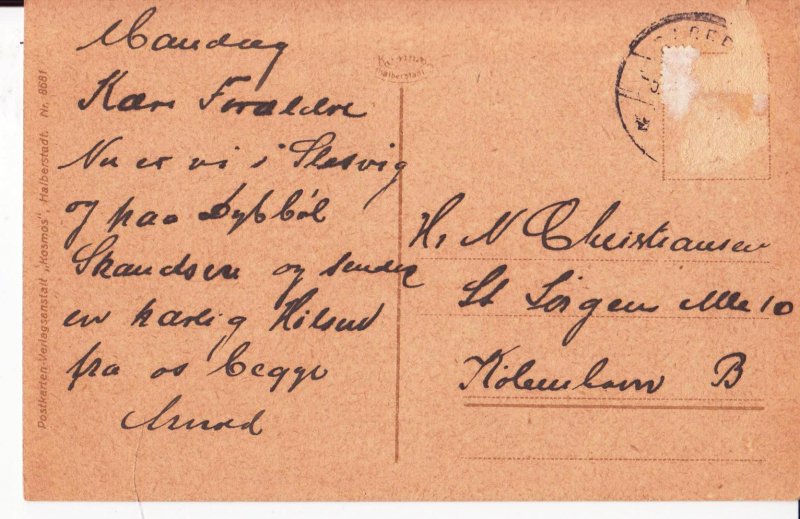 Postkarten-Verlagsanstalt „Kosmos“, Halberstadt. Nr. 8681
Mandag
Kære Forældre
Nu er vi i Slesvig
og paa Dybbøl
Skandsen og sender
en kærlig Hilsen
fra os begge
Halberstadt
Hr N Christiansen
St Jørgens Alle 10
København B